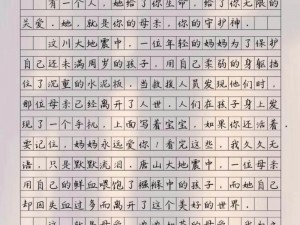 有一个人，她给了你生命，给了你无限的
关爱，她，就是你的母亲，你的守护神。
汶川大地震中，一位年轻的妈妈为了保护
自己还未满周岁的孩子，用自己柔弱的身躯挡
住了沉重的水泥板，当救援人员发现他们时，
那位母亲已经离开了人世，人们在孩子身上发
现了一个手机，上面写着宝宝，如果你还活着，
要记住，妈妈永远爱你。看见这些，我久久无
语，只是默默流泪。唐山大地震中，一位母亲
用自己的鲜血喂饱了襁褓中的孩子，而她自己
却因失血过多而离开了这个美好的世界。